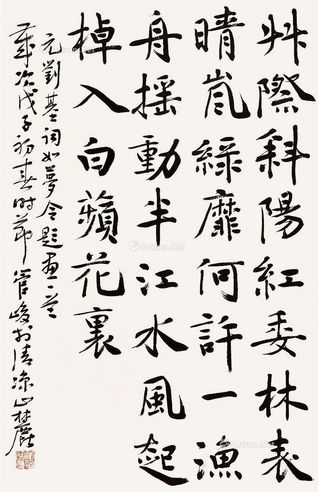 艸際斜陽紅委林表
晴嵐綠靡何許一漁
舟揺動半江水風起
棹入白蘋花裏
元劉基詞如夢令題畫一首
歲次戊子初春時節管峻於清涼山林麓